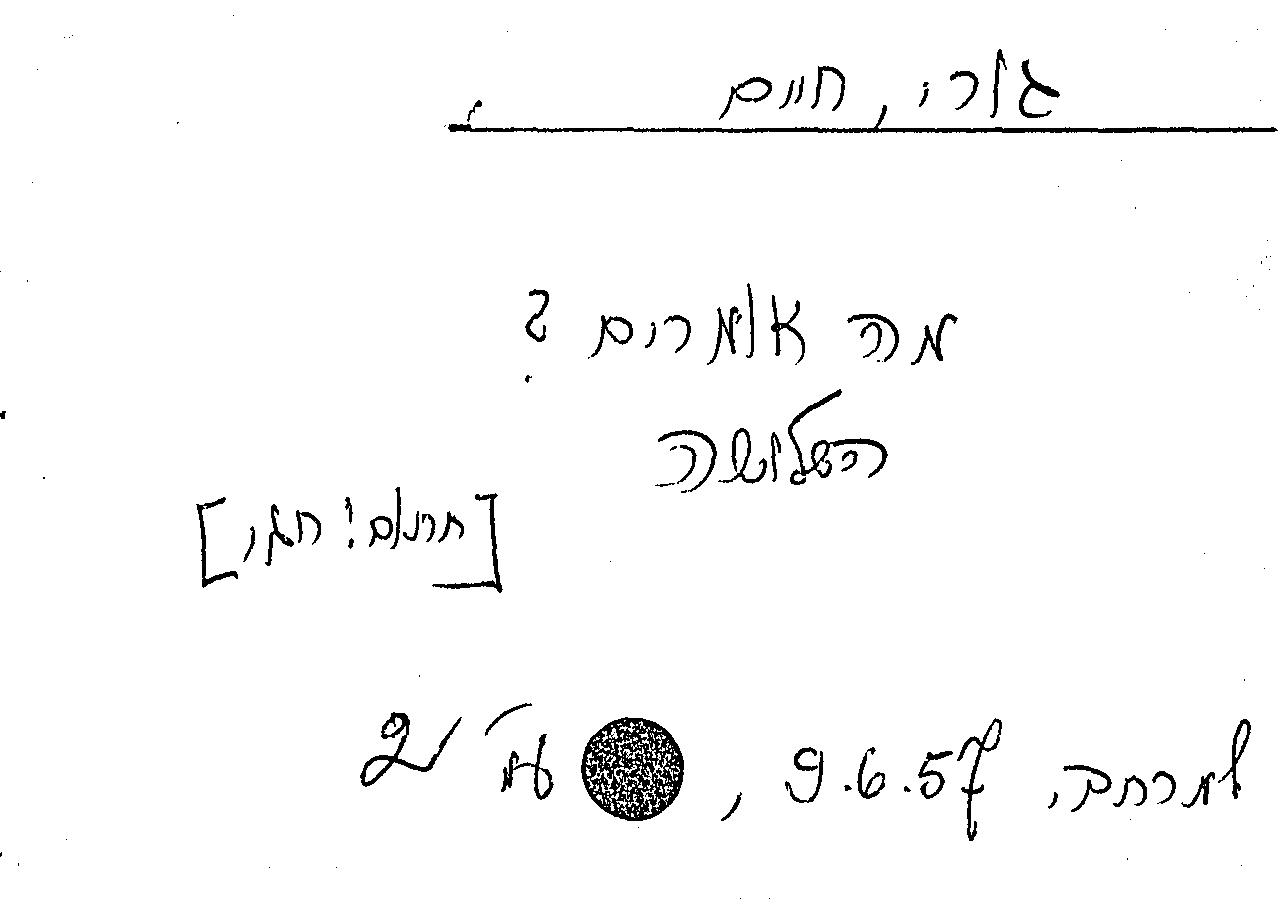 גורי, חיים
מה אומרים?
השלושה
[חתום: חגי]
למרחב, 9.6.57, עמ' 2